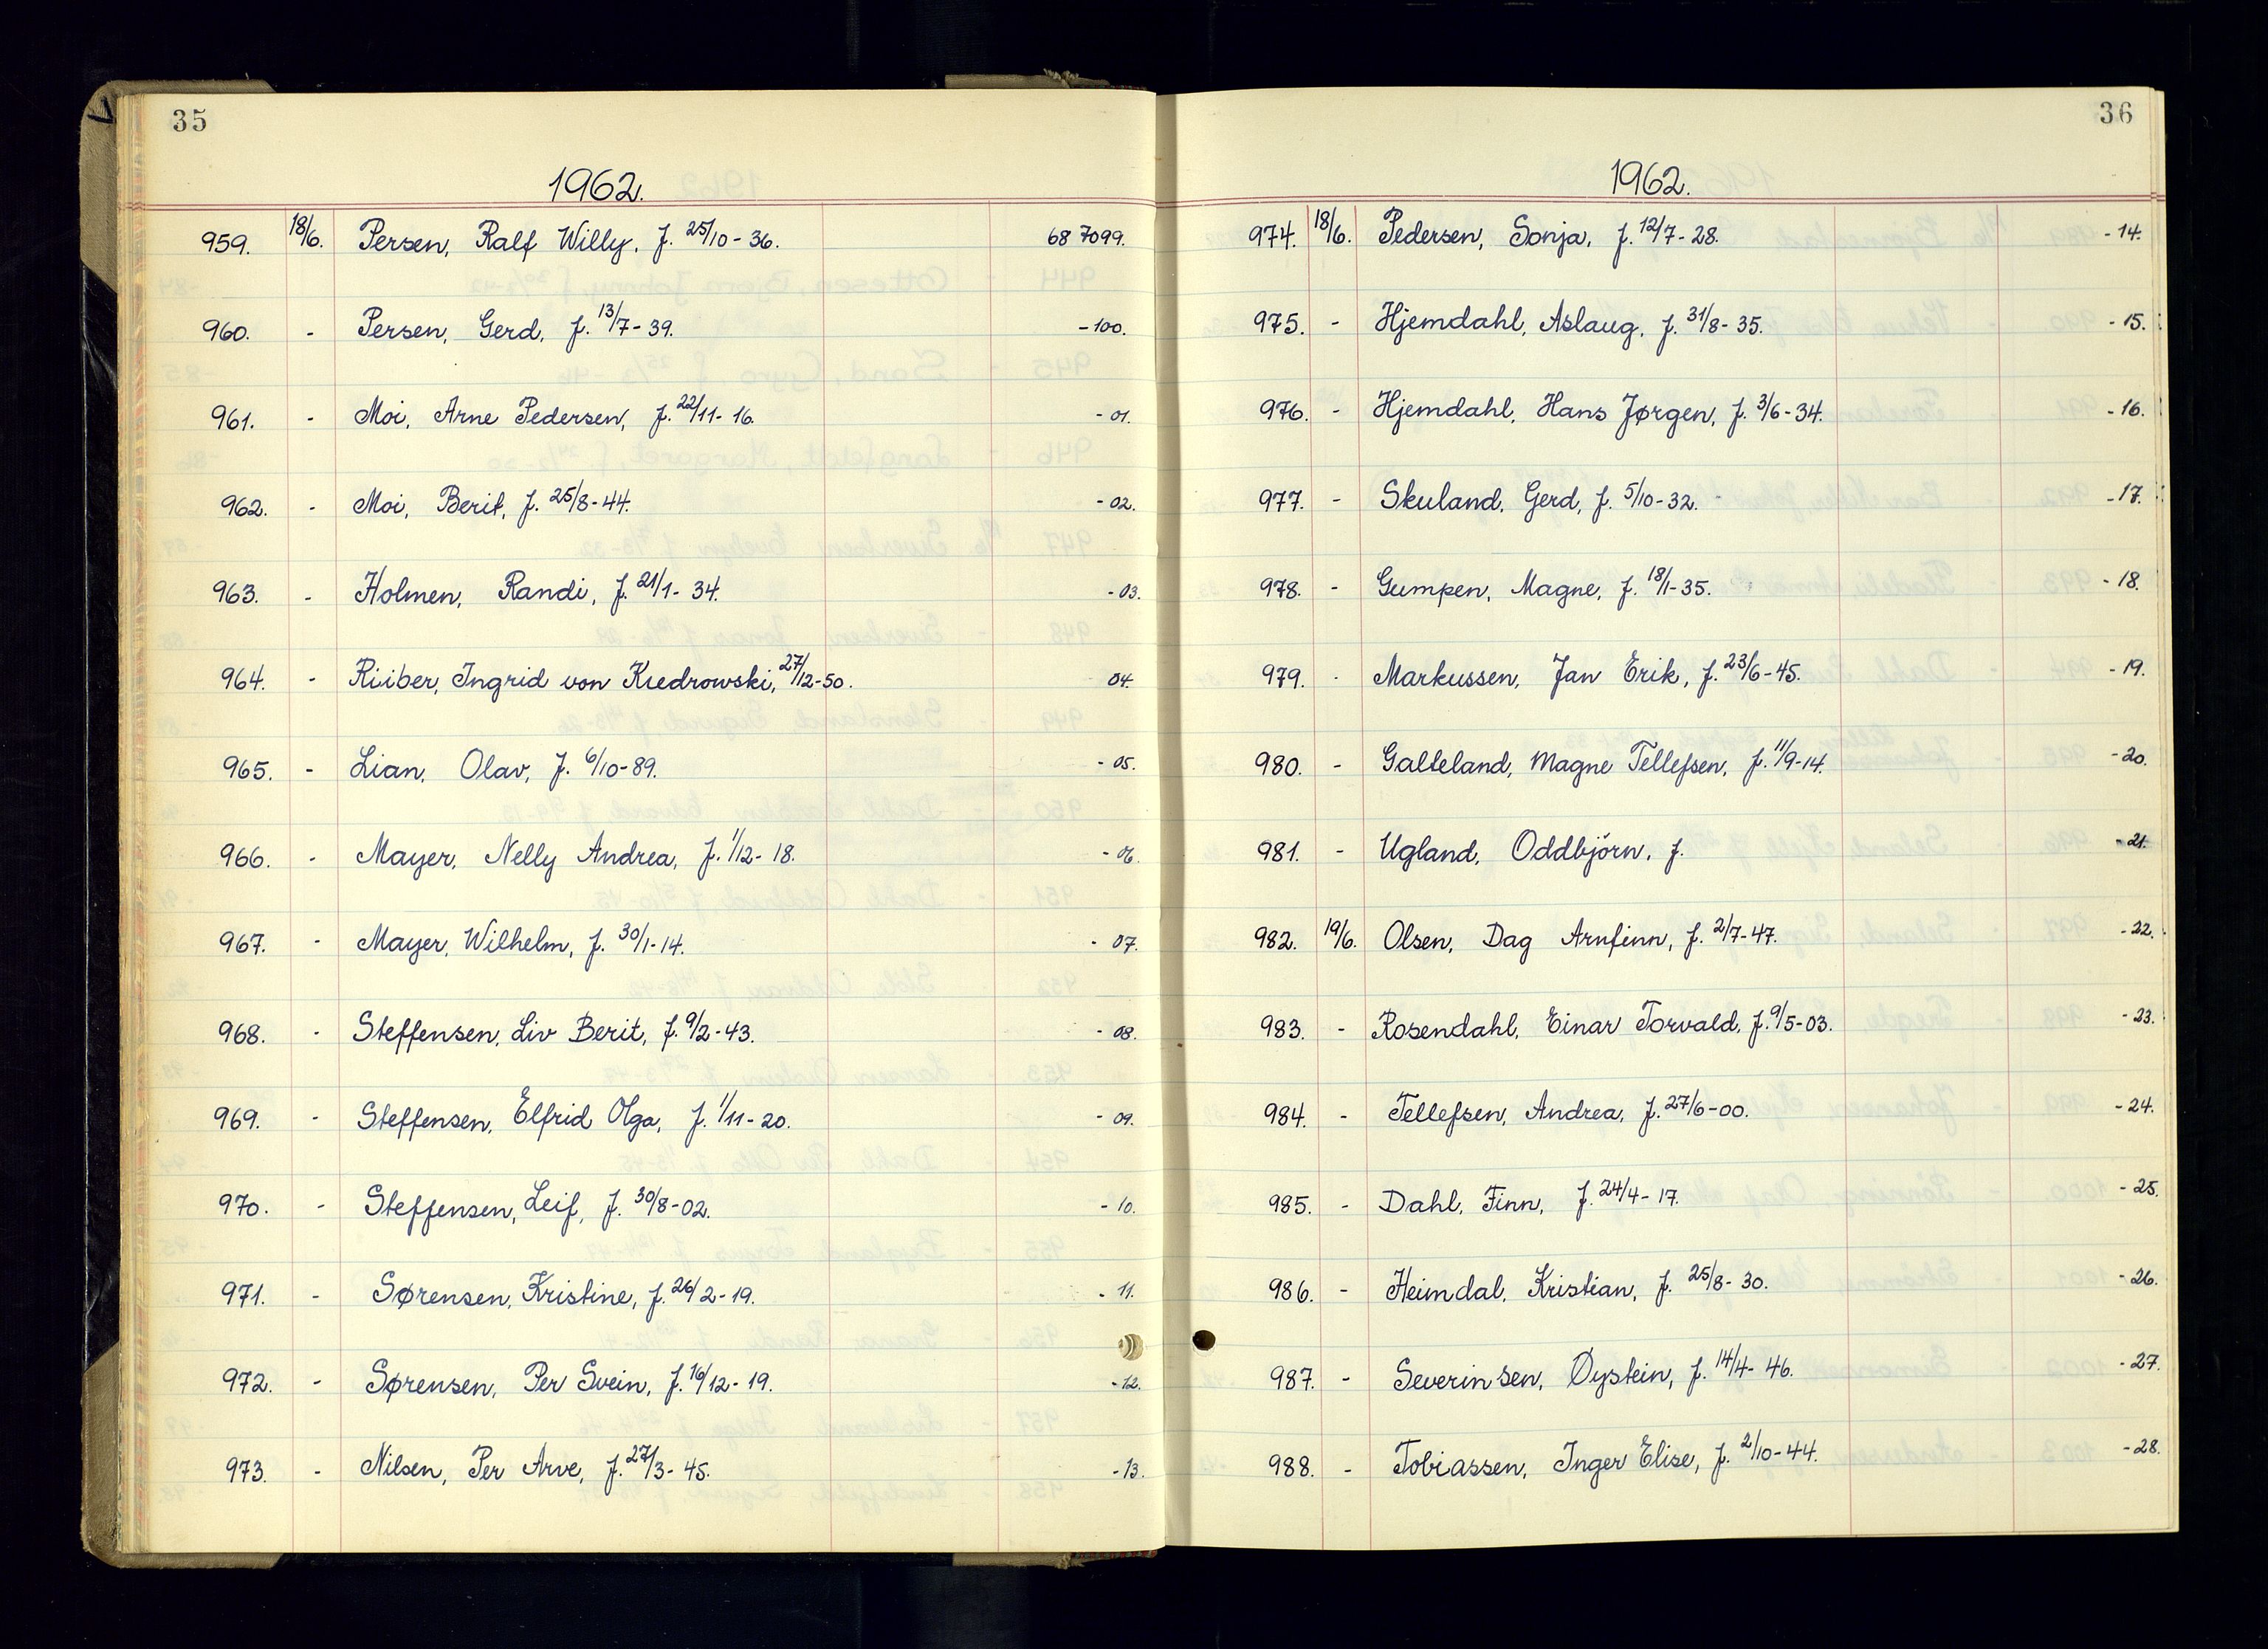 35
1962.
959. 18/6. Persen, Ralf Willy, f. 25/10-36. 68 7099.
960. - Persen, Gerd, f. 13/7-39. -100.
961. - Moi, Arne Pedersen, f. 22/11-16. -01.
962. - Moi, Berit, f. 25/8-44. -02.
963. - Holmen, Randi, f. 21/1-34. -03.
964. - Riiber, Ingrid von Kredrowski, 27/12-50. 04.
965. - Lian, Olav, f. 6/10-89. -05.
966. - Mayer, Nelly Andrea, f. 1/12-18. -06.
967. - Mayer, Wilhelm, f. 30/1-14. -07.
968. - Steffensen, Liv Berit, f. 9/2-43. -08.
969. - Steffensen, Elfrid Olga, f. 1/11-20. -09.
970. - Steffensen, Leif, f. 30/8-02. -10.
971. - Sørensen, Kristine, f. 26/2-19. -11.
972. - Sørensen, Per Svein, f. 16/12-19. -12.
973. - Nilsen, Per Arve, f. 27/3-45. -13.
36
1962.
974. 18/6. Pedersen, Sonja, f. 12/7-28. -14.
975. - Hjemdahl, Aslaug, f. 31/8-35. -15.
976. - Hjemdahl, Hans Jørgen, f. 3/6-34. -16.
977. - Skuland, Gerd, f. 5/10-32. -17.
978. - Gumpen, Magne, f. 18/1-35. -18.
979. - Markussen, Jan Erik, f. 23/6-45. -19.
980. - Galteland, Magne Tellefsen, f. 11/9-14. -20.
981. - Ugland, Oddbjörn, f. -21.
982. 19/6. Olsen, Dag Arnfinn, f. 2/7-47. -22.
983. - Rosendahl, Einar Torvald, f. 9/5-03. -23.
984. - Tellefsen, Andrea, f. 27/6-00. -24.
985. - Dahl, Finn, f. 24/4-17. -25.
986. - Heimdal, Kristian, f. 25/8-30. -26.
987. - Severinsen, Øystein, f. 14/4-46. -27.
988. - Tobiassen, Inger Elise, f. 2/10-44. -28.